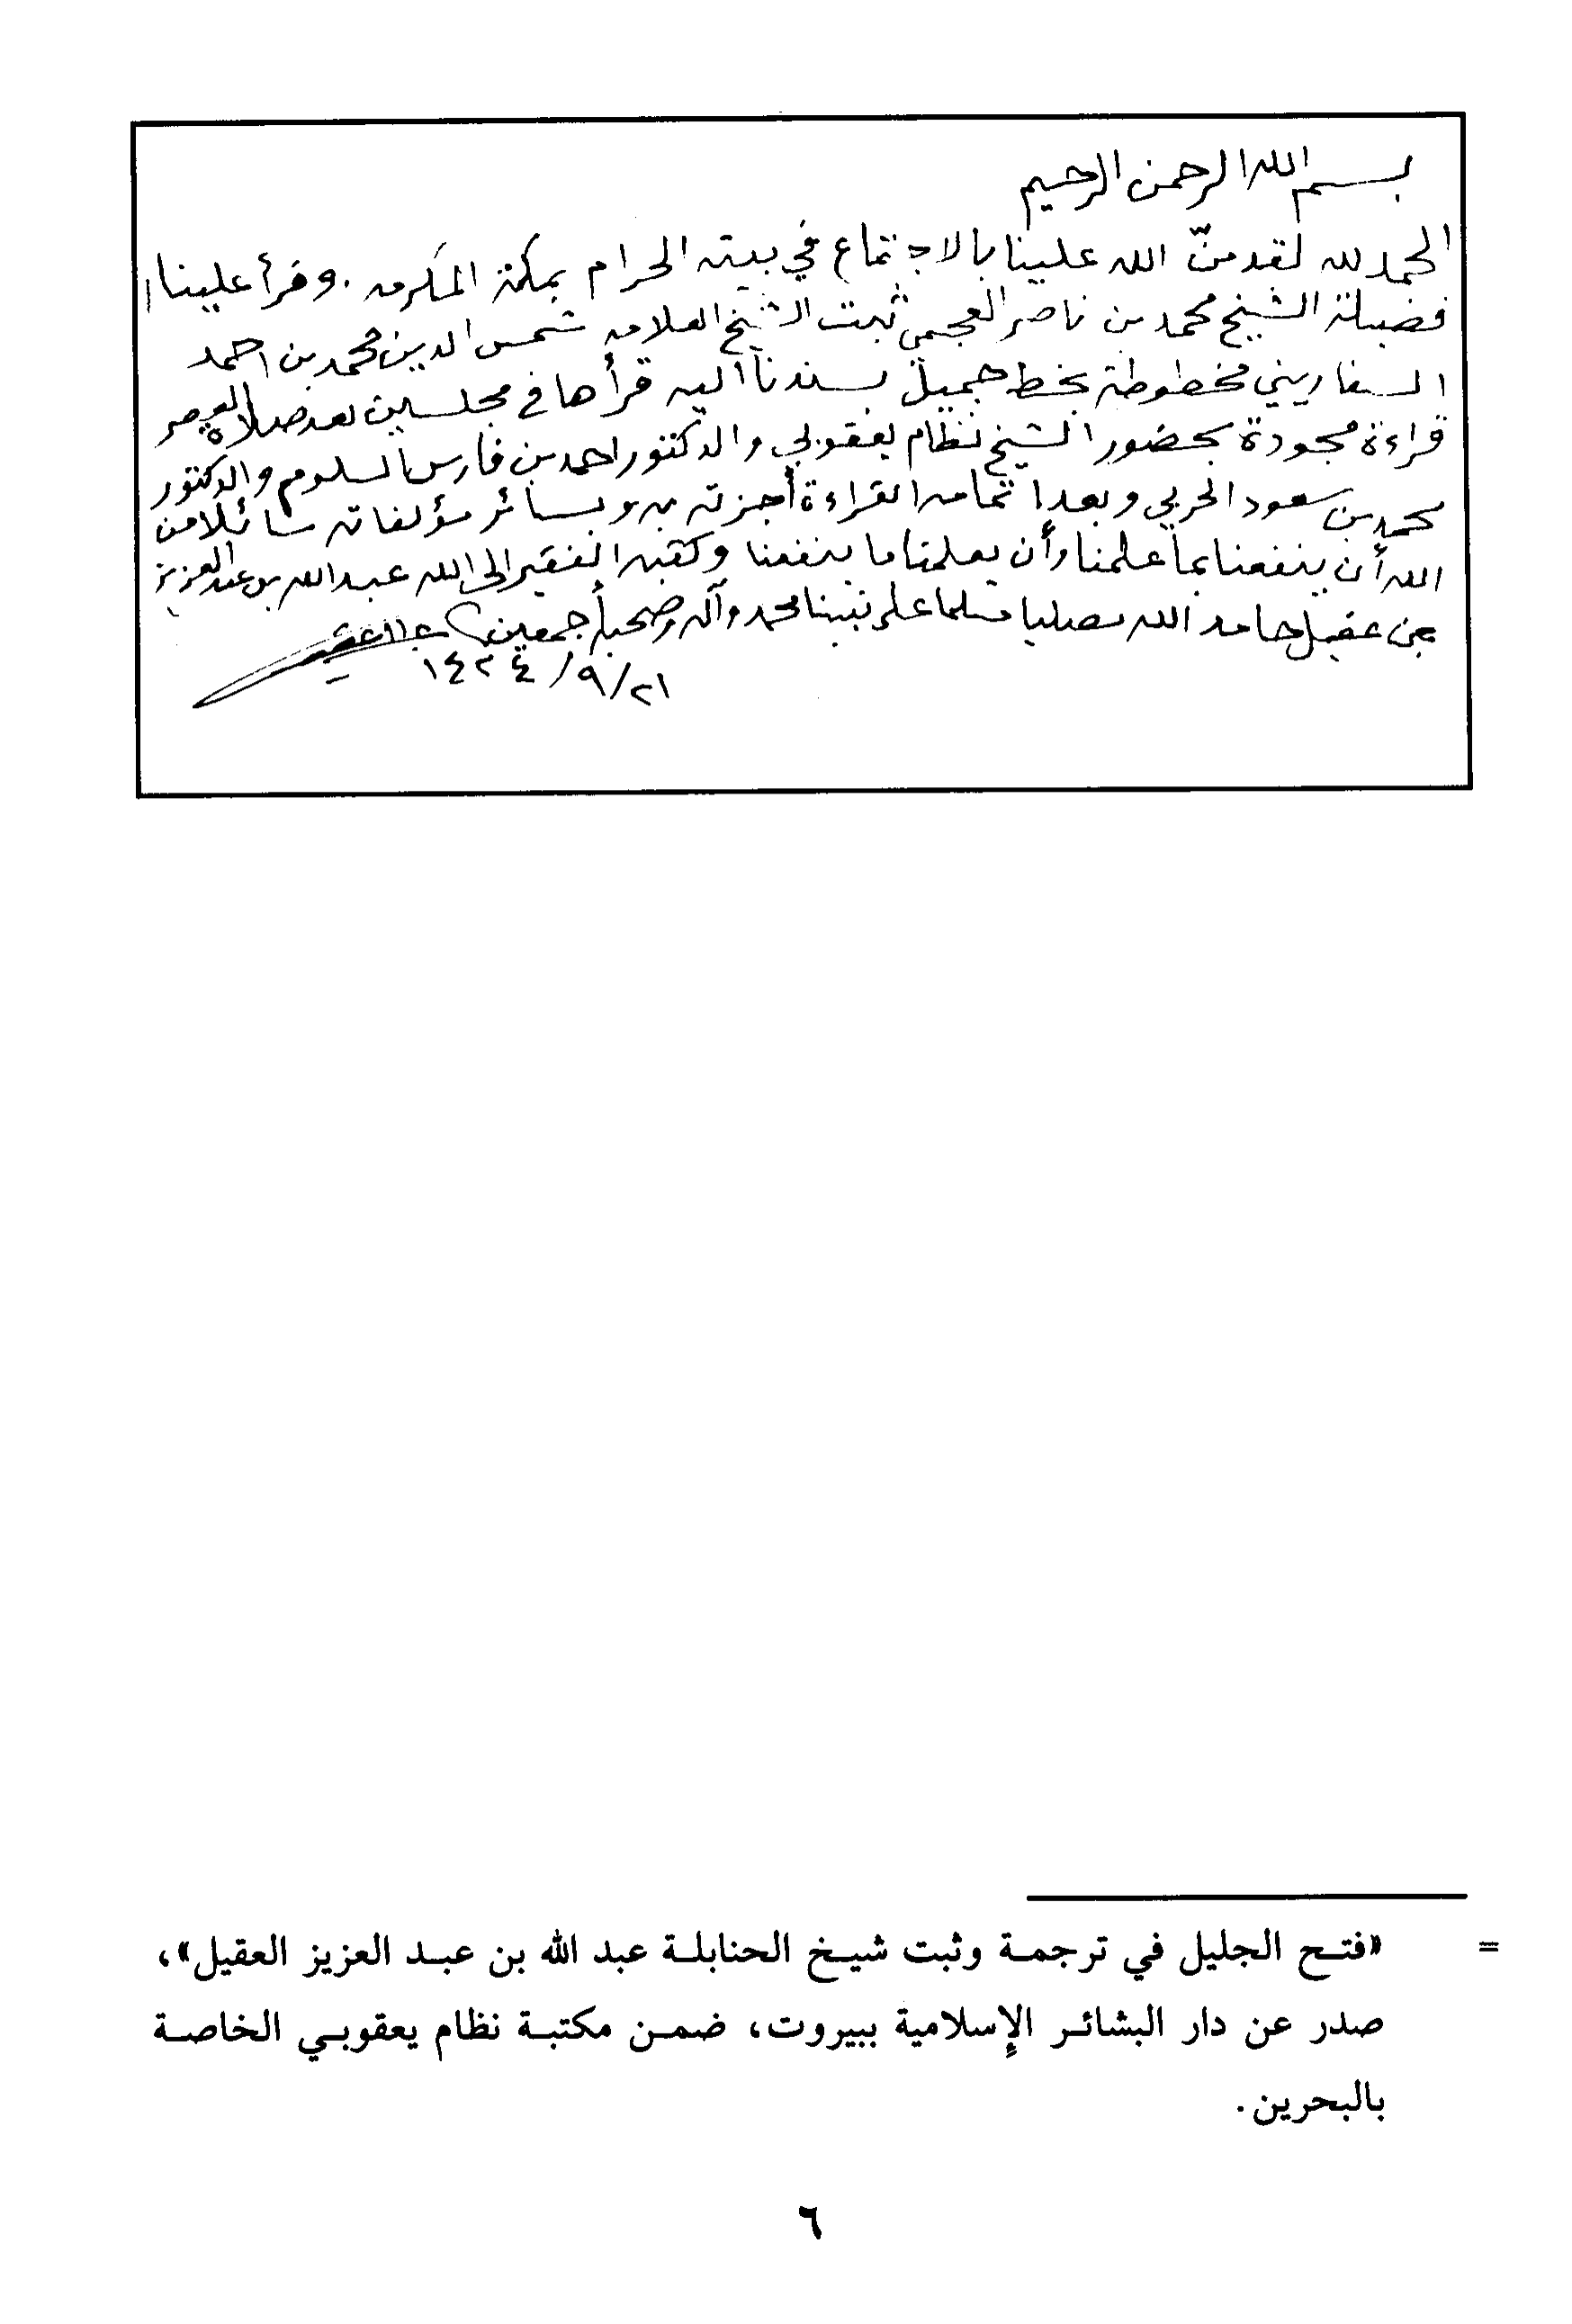 بسم الله الرحمن الرحيم
الحمد لله لقد منّ الله علينا بالاجتماع في بيته الحرام بمكة المكرمه . وقرأ علينا
فضيلة الشيخ محمد بن ناصر العجمي ثبت الشيخ العلامه شمس الدين محمد بن احمد
السفاريني مخطوطة بخط جميل بسندنا اليه قرأها في مجلسين بعد صلاة العصر
قراءة مجودة بحضور الشيخ نظام يعقوبي والدكتور احمد بن فارس السلوم والدكتور
محمد بن سعود الحربي وبعد اتمامه القراءة أجزته به وبسائر مؤلفاته سائلا من
الله أن ينفعنا بما علمنا وأن يعلمنا ما ينفعنا وكتبه الفقير الى الله عبد الله بن عبد العزيز
بن عقيل حامدا الله مصليا مسلما على نبينا محمد وآله وصحبه أجمعين
٢١/٩/١٤٢٤
= «فتح الجليل في ترجمة وثبت شيخ الحنابلة عبد الله بن عبد العزيز العقيل»،
صدر عن دار البشائر الإسلامية ببيروت، ضمن مكتبة نظام يعقوبي الخاصة
بالبحرين.
٦